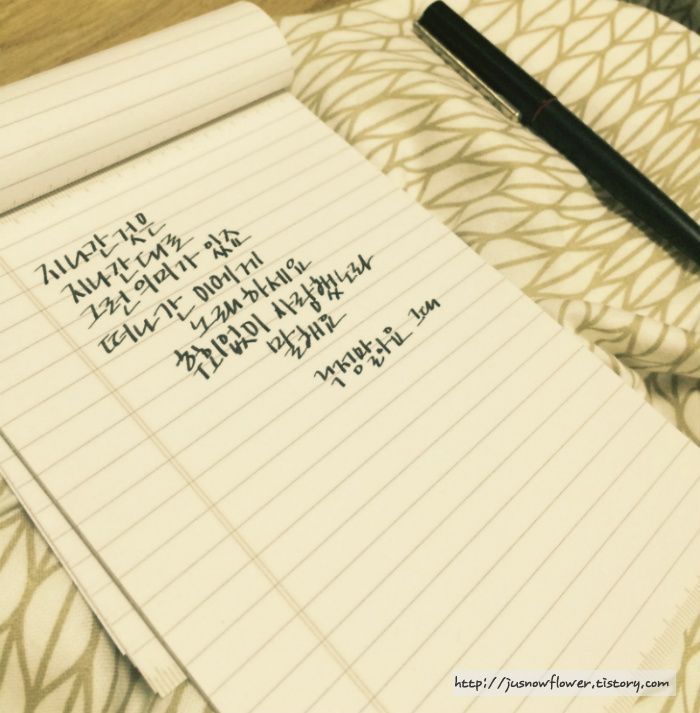 지나간 것은
지나간 대로
그런 의미가 있죠
떠나간 이에게
노래하세요
후회없이 사랑했노라
말해요
걱정말아요 그대
http://jusnowflower.tistory.com